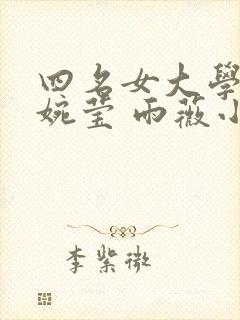 四名女大學
婉瑩 雨薇小
李紫微